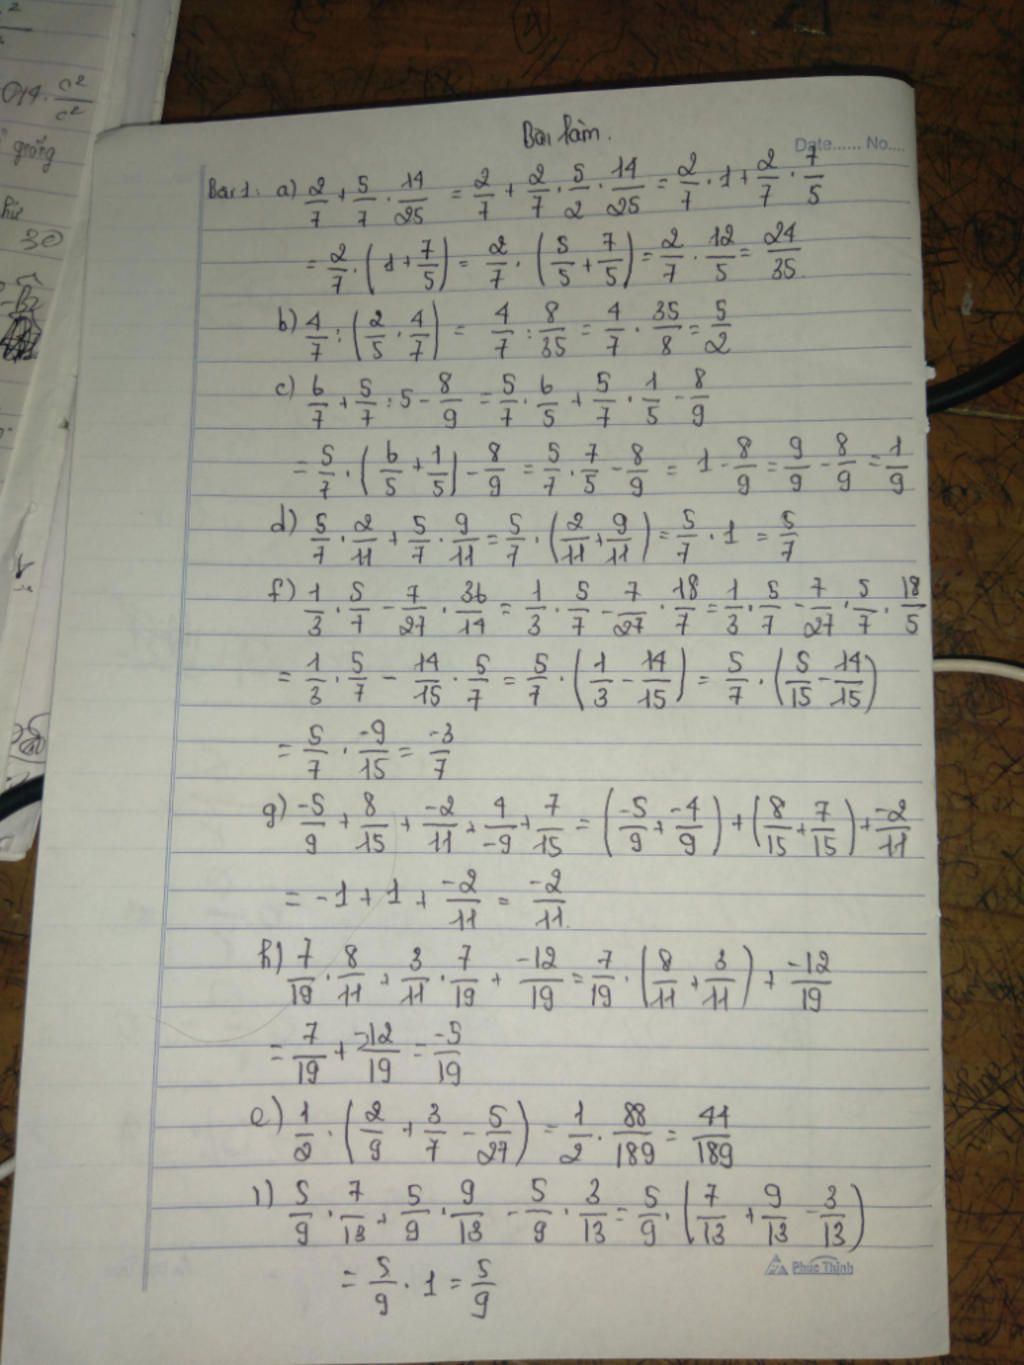 Bài làm.
Date...... No....
Bài 1: a) 2/7 + 5/7 . 14/25 = 2/7 + 2/7 . 5/2 . 14/25 = 2/7 . 1 + 2/7 . 7/5
= 2/7 . (1 + 7/5) = 2/7 . (5/5 + 7/5) = 2/7 . 12/5 = 24/35
b) 4/7 : (2/5 . 4/7) = 4/7 : 8/35 = 4/7 . 35/8 = 5/2
c) 6/7 + 5/7 : 5 - 8/9 = 5/7 . 6/5 + 5/7 . 1/5 - 8/9
= 5/7 . (6/5 + 1/5) - 8/9 = 5/7 . 7/5 - 8/9 = 1 - 8/9 = 9/9 - 8/9 = 1/9
d) 5/7 . 2/11 + 5/7 . 9/11 = 5/7 . (2/11 + 9/11) = 5/7 . 1 = 5/7
f) 1/3 . 5/7 - 7/27 . 36/14 = 1/3 . 5/7 - 7/27 . 18/7 = 1/3 . 5/7 - 7/27 . 5/7 . 18/5
= 1/3 . 5/7 - 14/15 . 5/7 = 5/7 . (1/3 - 14/15) = 5/7 . (5/15 - 14/15)
= 5/7 . -9/15 = -3/7
g) -5/9 + 8/15 + -2/11 + 4/-9 + 7/15 = (-5/9 + -4/9) + (8/15 + 7/15) + -2/11
= -1 + 1 + -2/11 = -2/11
h) 7/19 . 8/11 + 3/11 . 7/19 + -12/19 = 7/19 . (8/11 + 3/11) + -12/19
= 7/19 + -12/19 = -5/19
e) 1/2 . (2/9 + 3/7 - 5/27) = 1/2 . 88/189 = 44/189
i) 5/9 . 7/13 + 5/9 . 9/13 - 5/9 . 3/13 = 5/9 . (7/13 + 9/13 - 3/13)
= 5/9 . 1 = 5/9
Phúc Thịnh
014. c²/c²
giống
30